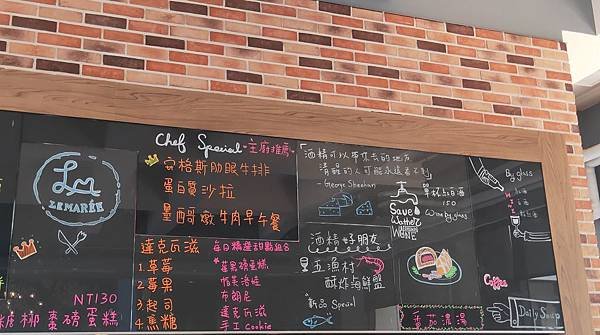 LM
LEMARÉE
NT130
糖椰棗磅蛋糕
Chef Special 主廚推薦
安格斯肋眼牛排
蛋白質沙拉
星酮嫩牛肉早午餐
達克瓦滋
每日精選甜點組合
1.草莓
2.莓果
3.起司
4.焦糖
莓果磅蛋糕
布朗尼
達克瓦滋
手工 Cookie
酒精可以帶你去的地方
清醒的人可能永遠看不到
- George Sheehan
酒精好朋友
五漁村
酥炸海鮮盤
新品 Special
Save
Wather
WINE
單杯紅白酒
150
Wine by glass
番茄濃湯
By glass
WINE
Coffee
Daily Soup